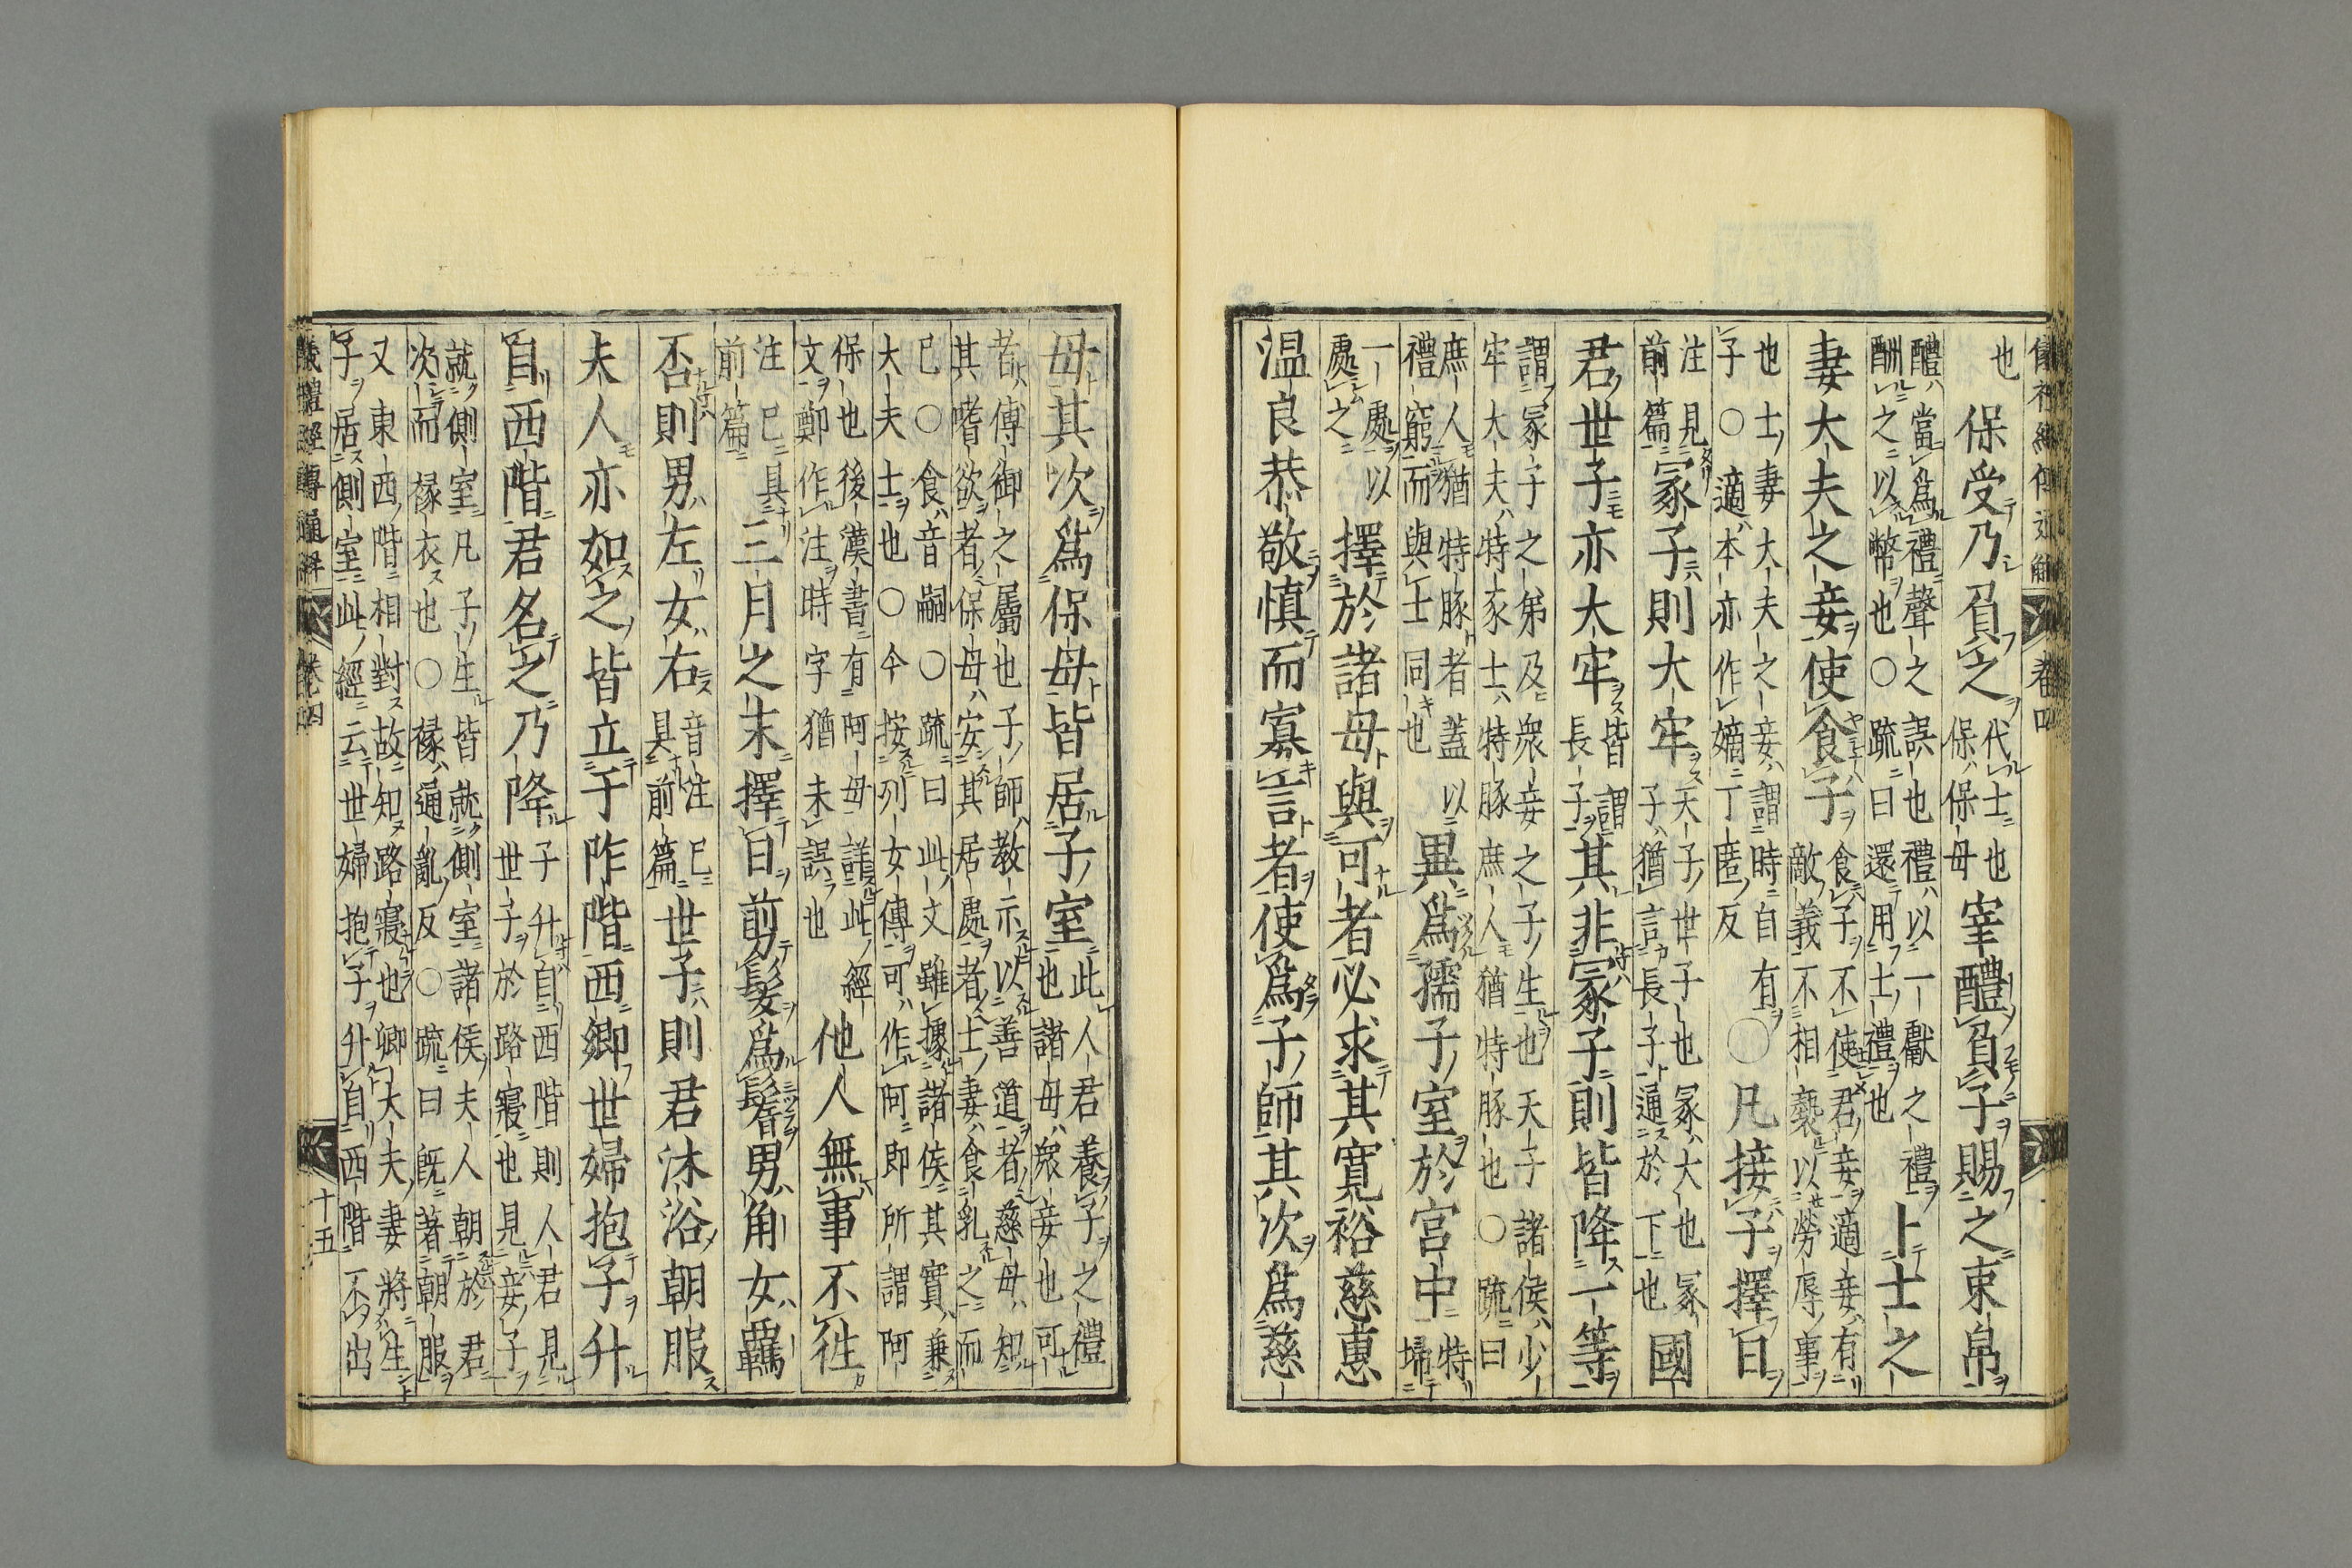 也保受乃負之代士也保保母宰醴負子賜之束帛
醴當爲禮聲之誤也禮以一獻之禮酬之以幣也○疏曰還用士禮也卜士之
妻大夫之妾使食子食子不使君妾適妾有敵義不相褻以勞辱事
也士妻大夫之妾謂時自有子○適本亦作嫡丁匿反○凡接子擇日
注見前篇冢子則大牢天子世子也冢大也冢子猶言長子通於下也國
君世子亦大牢皆謂長子其非冢子則皆降一等
謂冢子之弟及衆妾之子生也天子諸侯少牢大夫特豕士特豚庶人猶特豚也○疏曰
庶人猶特豚者蓋以禮窮而與士同也異爲孺子室於宮中特掃
一處以處之擇於諸母與可者必求其寬裕慈惠
温良恭敬慎而寡言者使爲子師其次爲慈
母其次爲保母皆居子室此人君養子之禮也諸母衆妾也可
者傅御之屬也子師教示以善道者慈母知其嗜欲者保母安其居處者士妻食乳之而
已○食音嗣○疏曰此文雖據諸侯其實兼大夫士也○今按列女傳可作阿即所謂阿
保也後漢書有阿母詳此經文鄭作注時字猶未誤也他人無事不往
注已具前篇三月之末擇日剪髮爲鬌男角女羈
否則男左女右音注已具前篇世子則君沐浴朝服
夫人亦如之皆立于阼階西鄉世婦抱子升
自西階君名之乃降子升自西階則人君見世子於路寢也見妾子
就側室凡子生皆就側室諸侯夫人朝於君次而褖衣也○褖通亂反○疏曰既著朝服
又東西階相對故知路寢也卿大夫妻將生子居側室此經云世婦抱子升自西階不出
儀禮經傳通解 卷四 十五